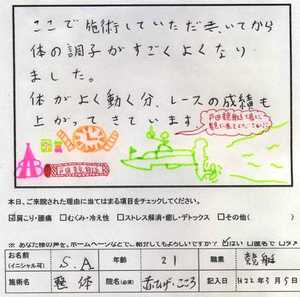 ここで施術していただき、いてから
体の調子がすごくよくなり
ました。
体がよく動く分、レースの成績も
上がってきています
戸田競艇
本日、ご来院された理由に当てはまる項目をチェックしてください。
☑肩こり・腰痛 □むくみ・冷え性 □ストレス解消・癒し・デトックス □その他(
※ あなた様の声を、ホームページなどで、紹介してもよろしいですか? ☑はい □匿名で
お名前 (イニシャル可) S.A 年齢 21 職業 競艇
施術名 整体 院名(必須) 赤ひげ・こころ 記入日 H22年3月5日